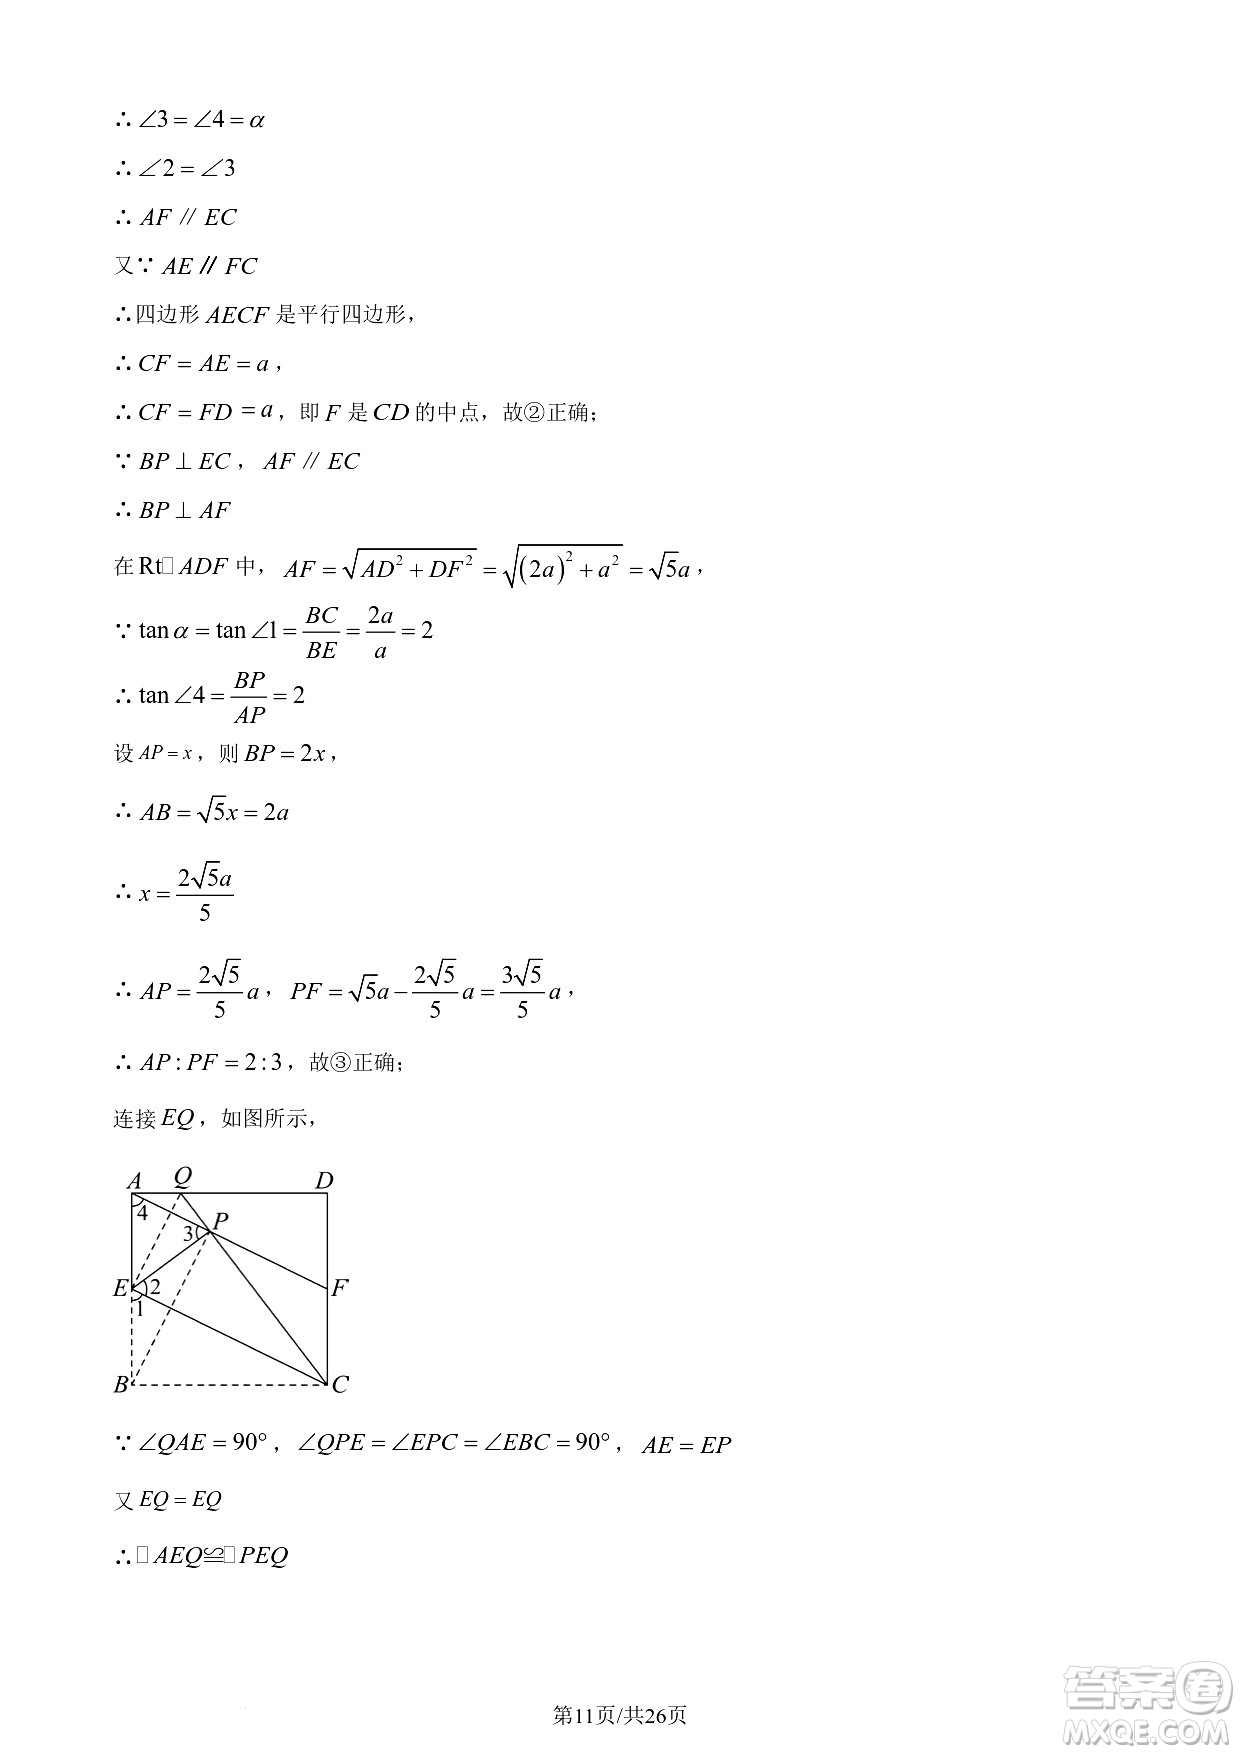 ∴∠3=∠4=α
∴∠2=∠3
∴AF∥EC
又∵AE∥FC
∴四边形AECF是平行四边形，
∴CF=AE=a，
∴CF=FD=a，即F是CD的中点，故②正确；
∵BP⊥EC，AF∥EC
∴BP⊥AF
在Rt□ADF中，AF=√(AD²+DF²)=√((2a)²+a²)=√5a，
∵tanα=tan∠1=BC/BE=2a/a=2
∴tan∠4=BP/AP=2
设AP=x，则BP=2x，
∴AB=√5x=2a
∴x=2√5a/5
∴AP=2√5/5 a，PF=√5a−2√5/5 a=3√5/5 a，
∴AP:PF=2:3，故③正确；
连接EQ，如图所示，
A Q D
4
3 P
E 2 F
1
B C
∵∠QAE=90°，∠QPE=∠EPC=∠EBC=90°，AE=EP
又EQ=EQ
∴□AEQ≌□PEQ
答案圈
MXQE.COM
第11页/共26页